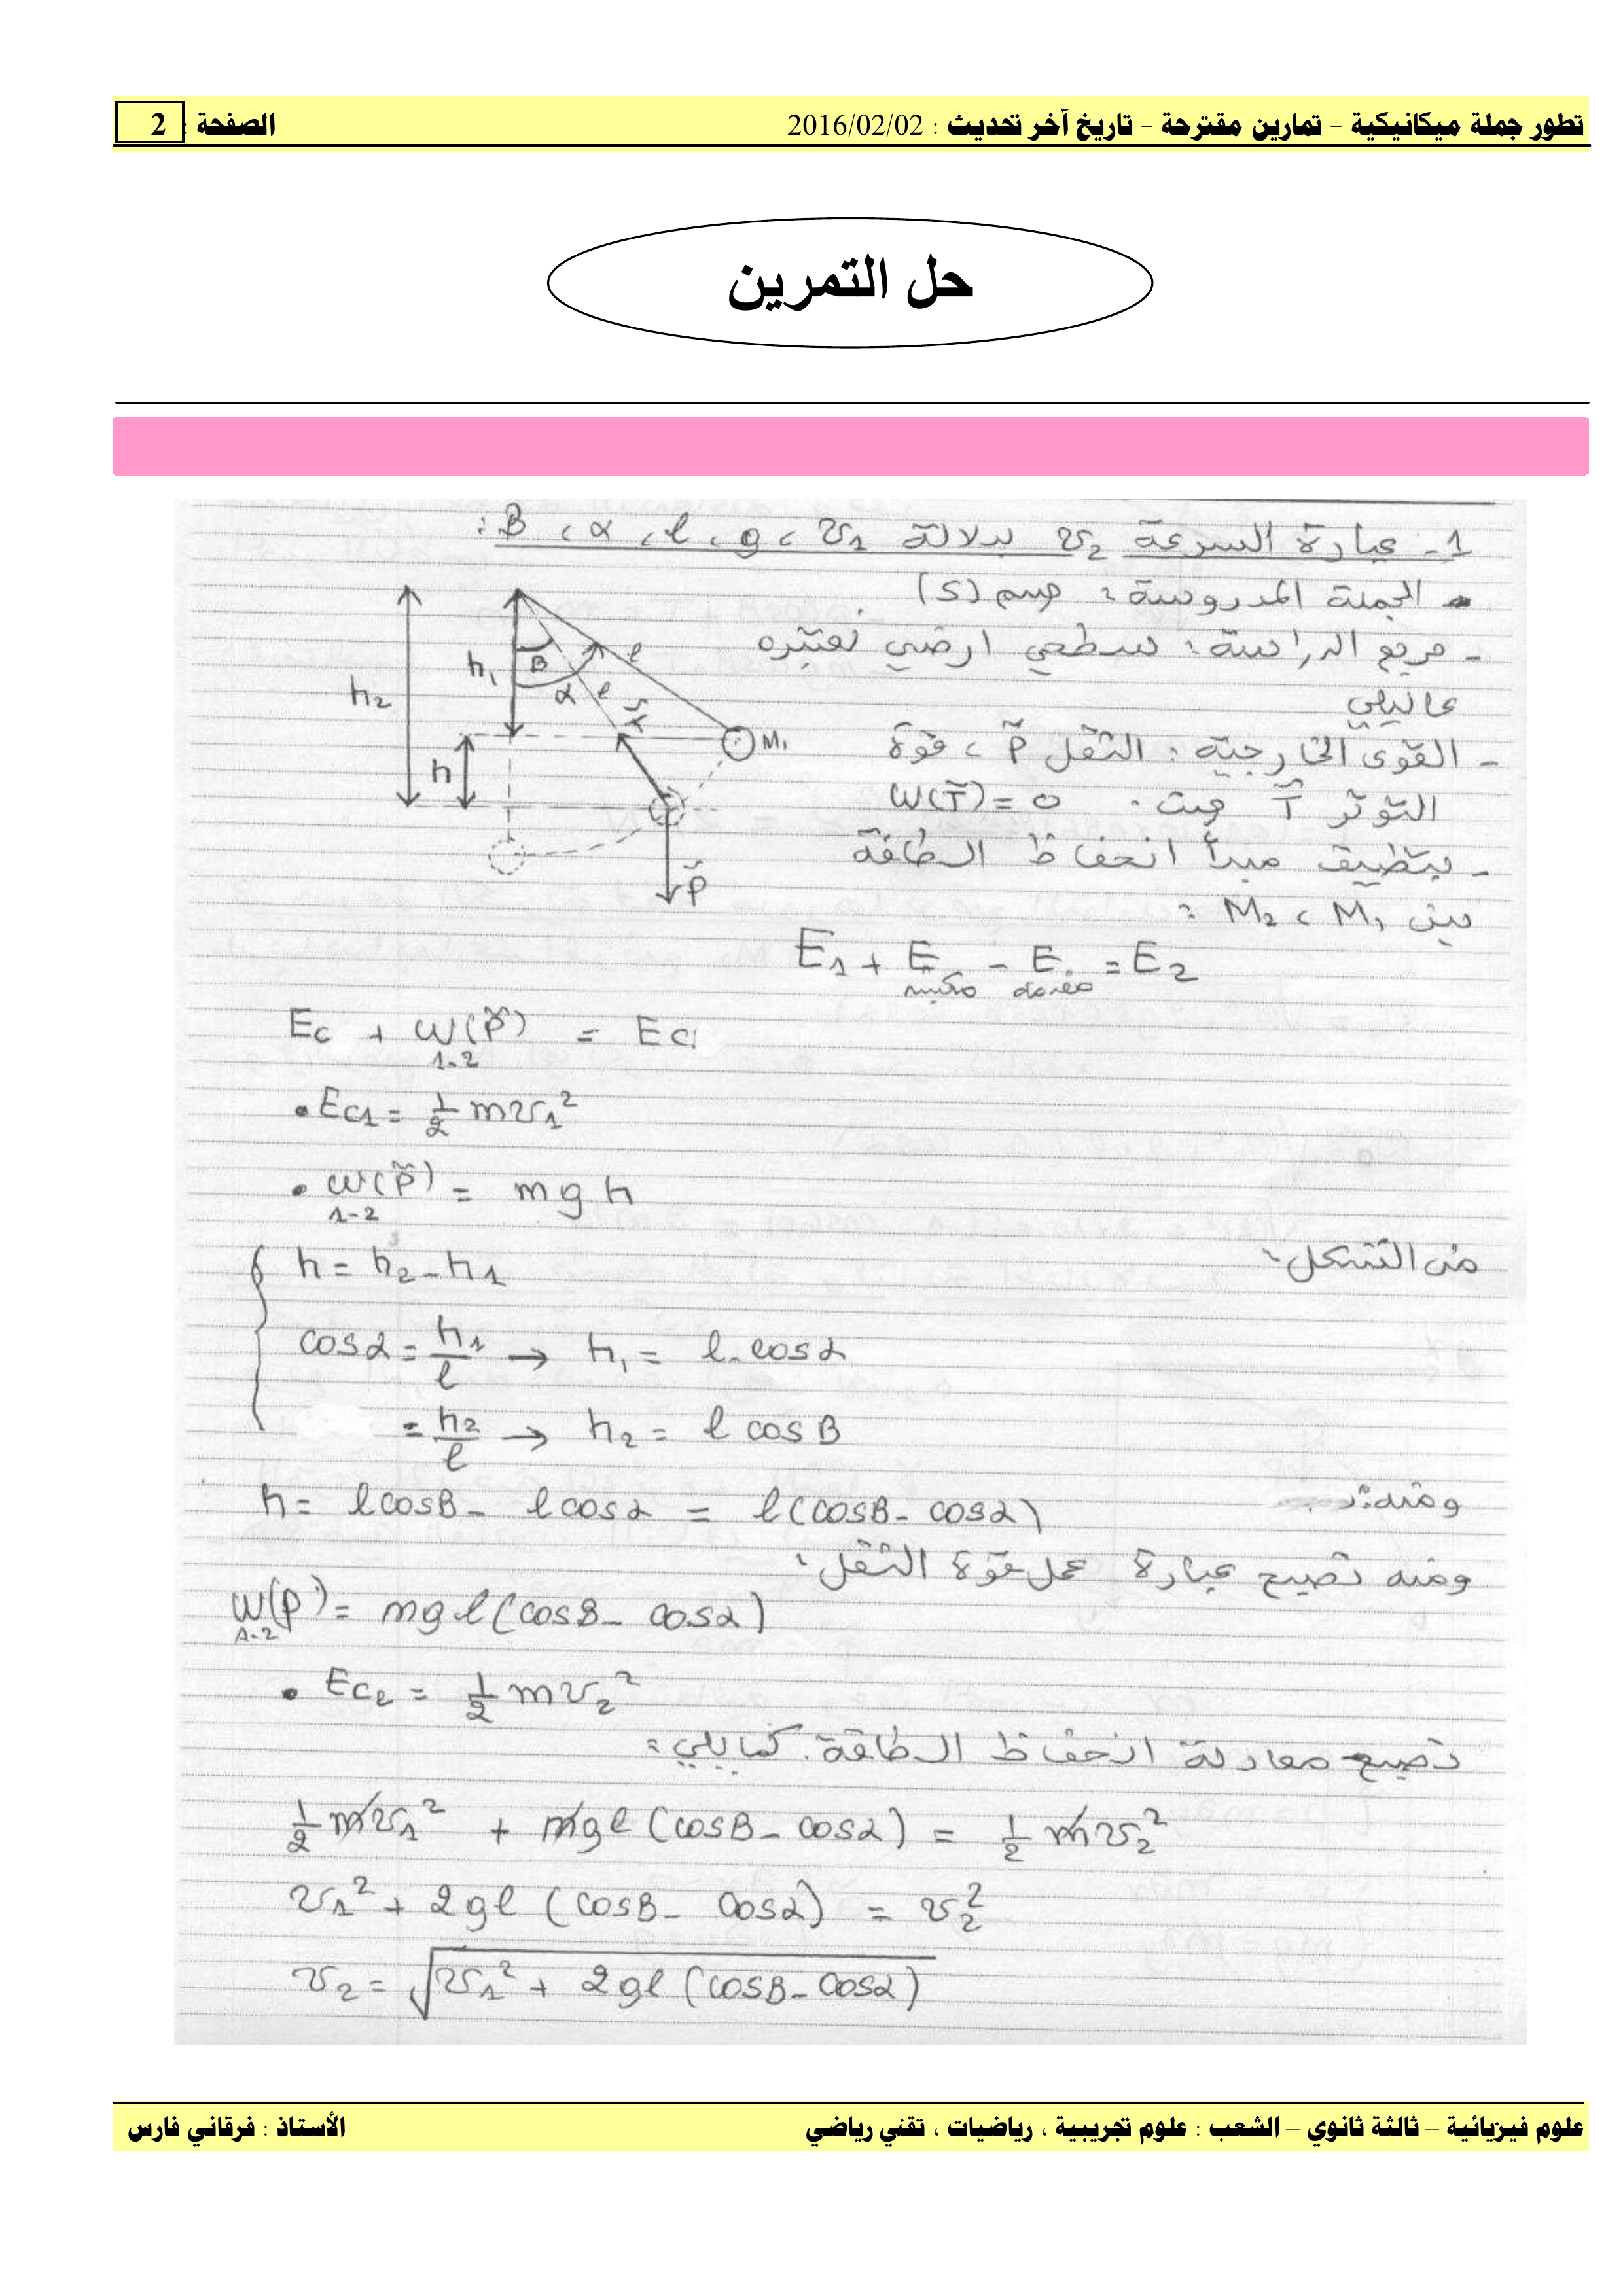 تطور جملة ميكانيكية – تمارين مقترحة – تاريخ آخر تحديث : 2016/02/02 الصفحة : 2
حل التمرين
1- عبارة السرعة v₂ بدلالة v₁ ، g ، l ، α ، B :
- الجملة المدروسة : جسم (S)
- مرجع الدراسة : سطحي ارضي نعتبره
غاليلي
- القوى الخارجية : الثقل P ، قوة
التوتر T حيث . W(T) = 0
- بتطبيق مبدأ انحفاظ الطاقة
بين M₁ ، M₂ :
h₂
h₁
h
B
α
l
l
M₁
P
E₁ + E مكتسبة - E مقدمة = E₂
Ec + W(P) 1-2 = Ec
• Ec₁ = 1/2 m v₁²
• W(P) 1-2 = m g h
من الشكل :
h = h₂ - h₁
cos α = h₁/l → h₁ = l . cos α
= h₂/l → h₂ = l cos B
ومنه :
h = l cos B - l cos α = l (cos B - cos α)
ومنه تصبح عبارة عمل قوة الثقل :
W(P) 1-2 = m g l (cos B - cos α)
• Ec₂ = 1/2 m v₂²
تصبح معادلة انحفاظ الطاقة كما يلي :
1/2 m v₁² + m g l (cos B - cos α) = 1/2 m v₂²
v₁² + 2 g l (cos B - cos α) = v₂²
v₂ = √(v₁² + 2 g l (cos B - cos α))
علوم فيزيائية – ثالثة ثانوي – الشعب : علوم تجريبية ، رياضيات ، تقني رياضي الأستاذ : فرقاني فارس